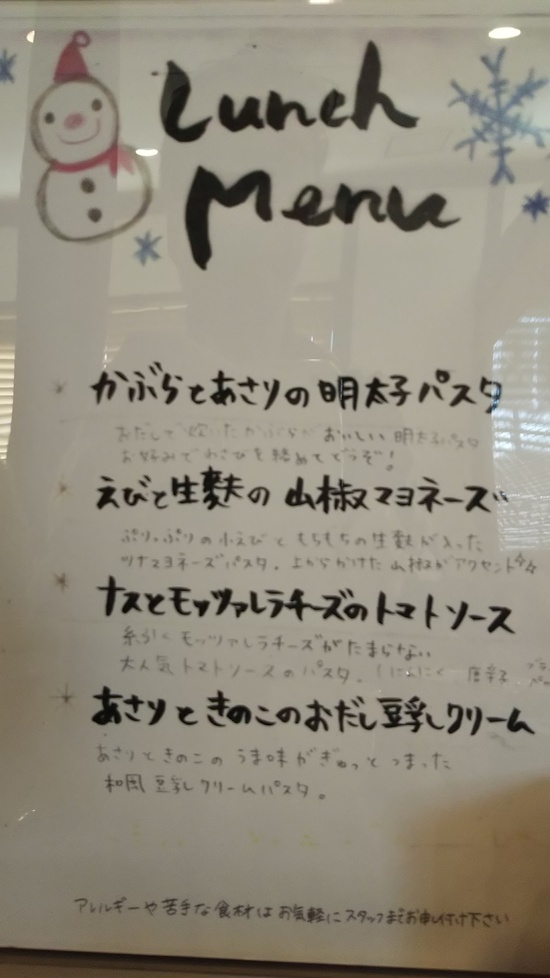 Lunch
Menu
かぶらとあさりの明太子パスタ
おだしで炊いたかぶらがおいしい明太子パスタ
お好みでわさびを絡めてどうぞ!
えびと生麩の山椒マヨネーズ
ぷりっぷりの小えびともちもちの生麩が入った
ツナマヨネーズパスタ。上からかけた山椒がアクセント☆☆
ナスとモッツァレラチーズのトマトソース
糸ひくモッツァレラチーズがたまらない
大人気トマトソースのパスタ。(にんにく 唐辛子
あさりときのこのおだし豆乳クリーム
あさりときのこのうま味がぎゅっとつまった
和風豆乳クリームパスタ。
アレルギーや苦手な食材はお気軽にスタッフまでお申し付け下さい